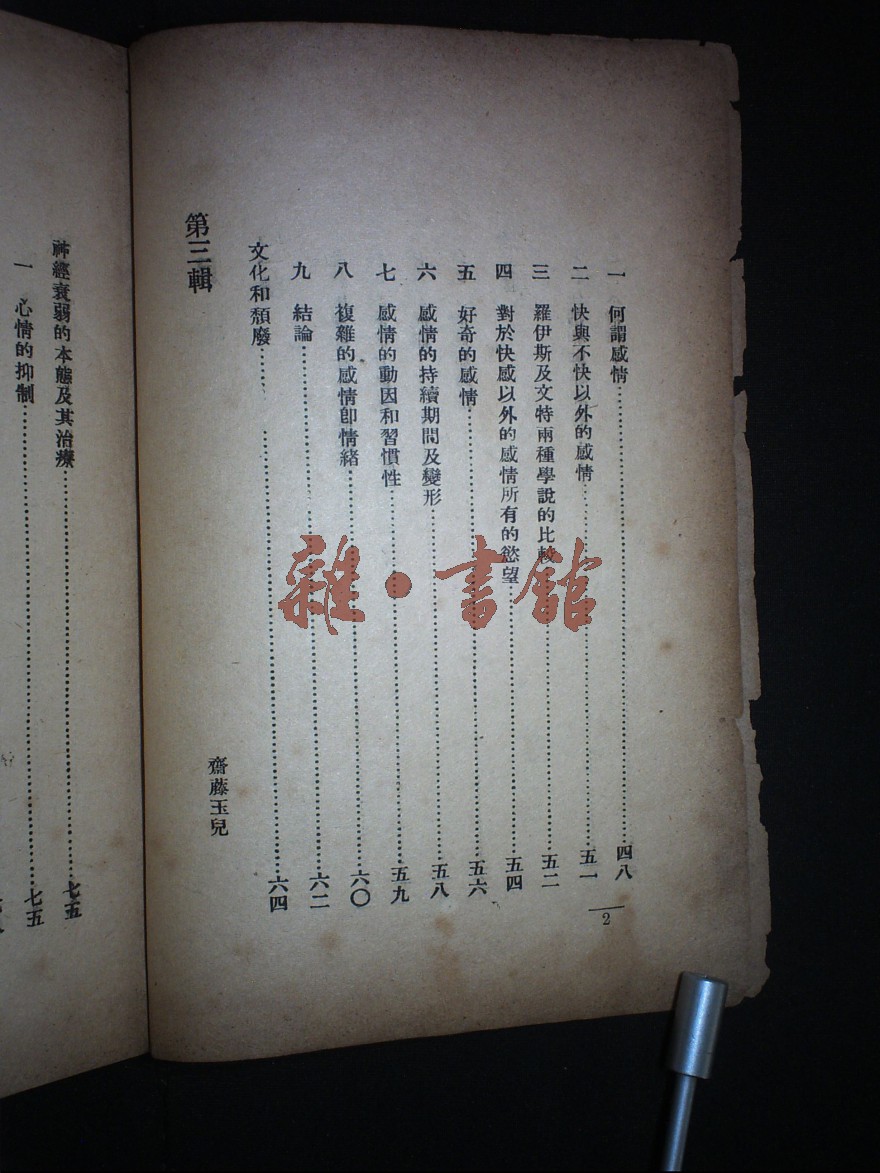 一　何謂感情……四八
二　快與不快以外的感情……五一
三　羅伊斯及文特兩種學說的比較……五二
四　對於快感以外的感情所有的慾望……五四
五　好奇的感情……五六
六　感情的持續期間及變形……五八
七　感情的動因和習慣性……五九
八　複雜的感情卽情緒……六〇
九　結論……六二
文化和頹廢……六四
齋藤玉兒
第三輯
2
神經衰弱的本態及其治療……七五
一　心情的抑制……七五
雜·書館